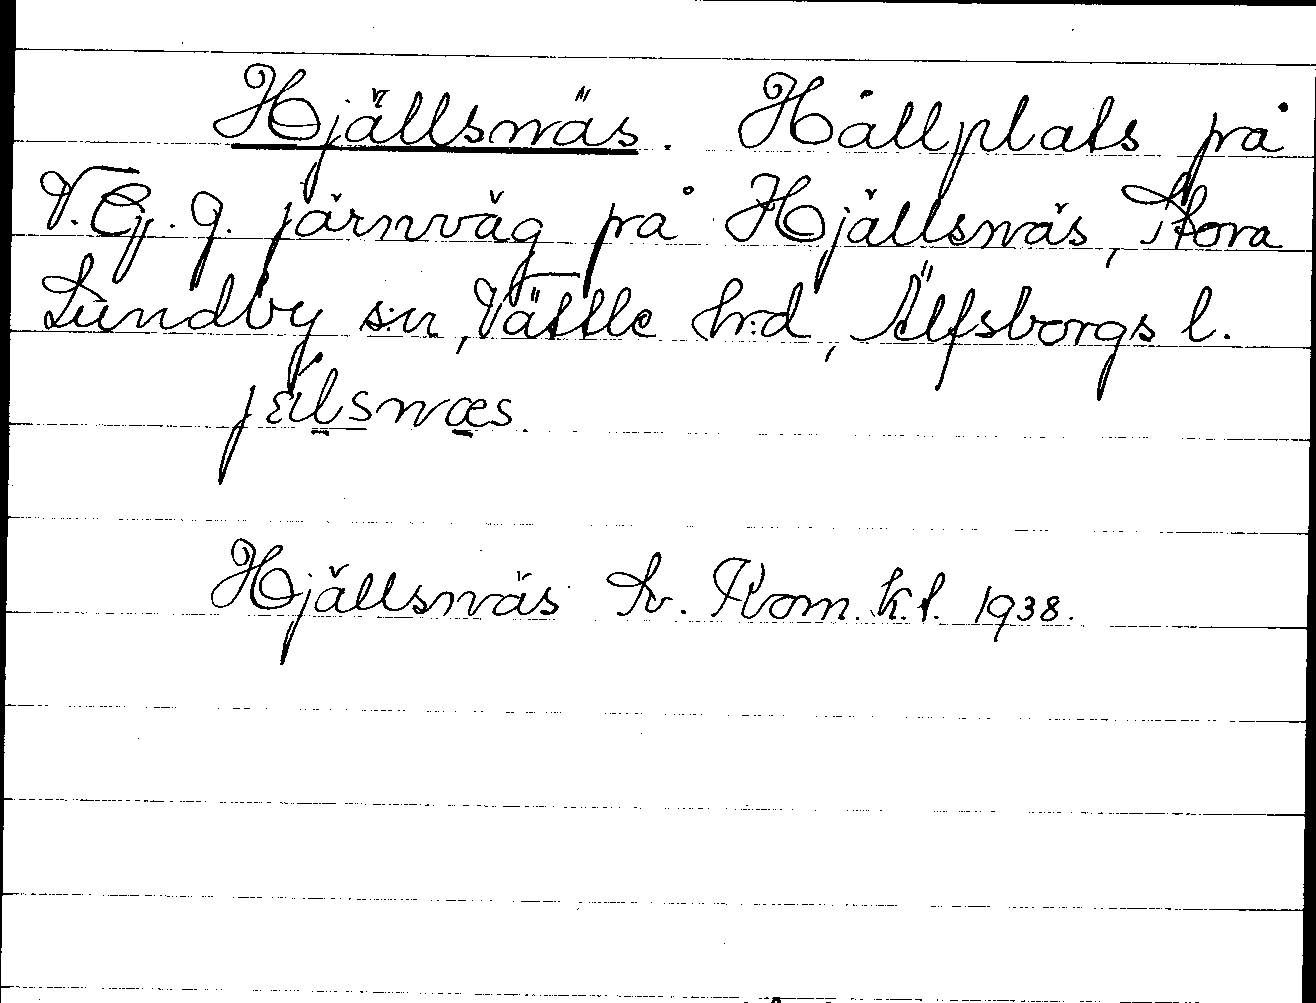 Hjällsnäs. Hållplats på
V.G. g. järnväg på Hjällsnäs, Stora
Lundby sn, Vättle hrd, Älfsborgs l.
Hjällsnäs h. Kom.k.l. 1938.